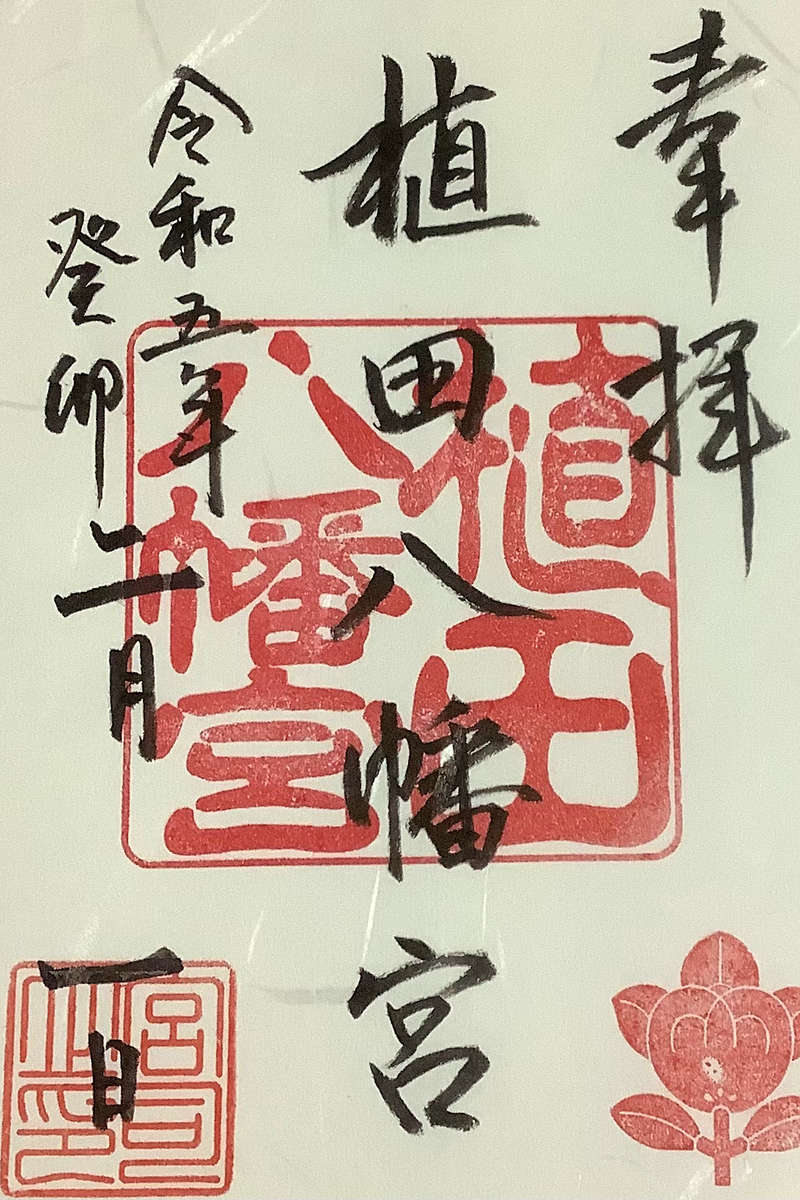 奉拝
植田八幡宮
令和五年
癸卯二月一日
植田
八幡宮
宮司
之印